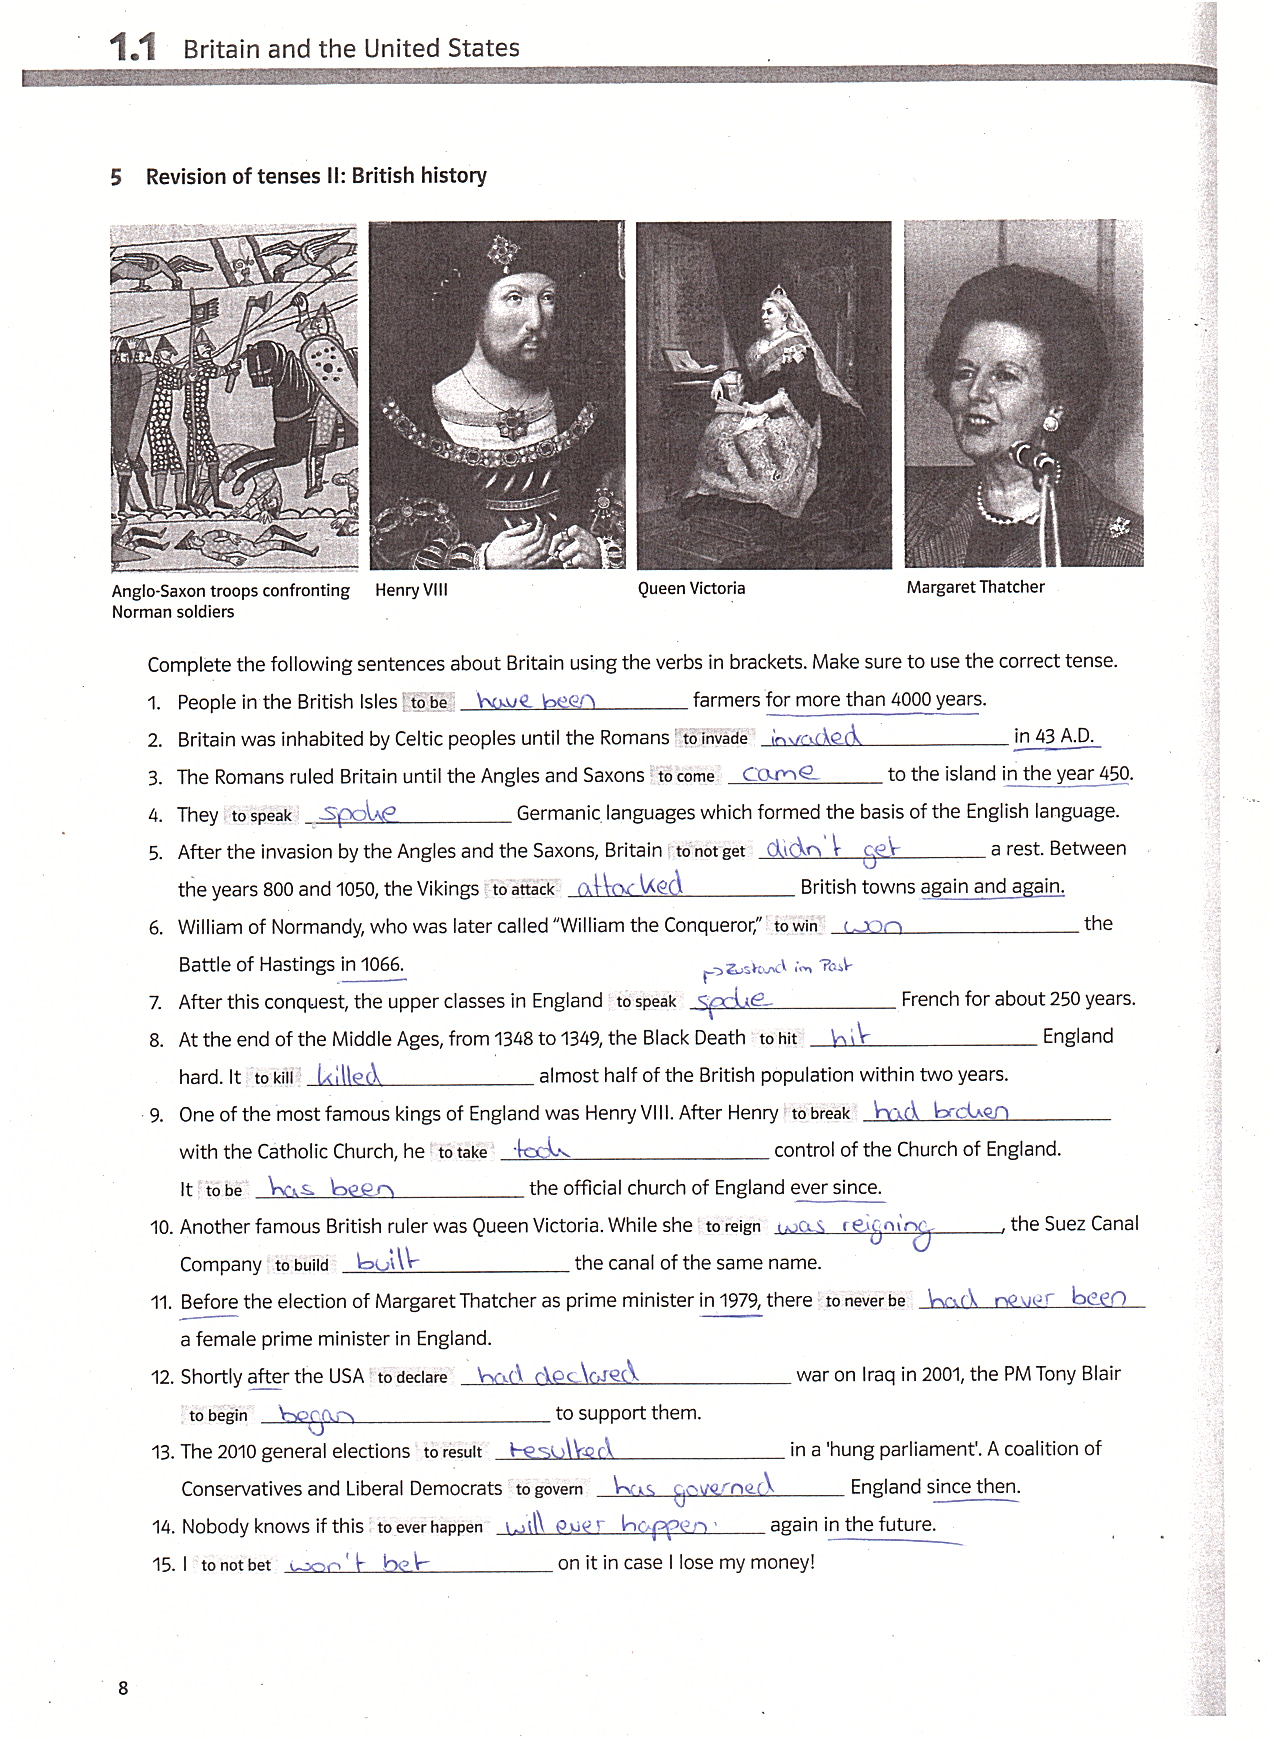 1.1 Britain and the United States
5 Revision of tenses II: British history
Anglo-Saxon troops confronting
Norman soldiers
Henry VIII
Queen Victoria
Margaret Thatcher
Complete the following sentences about Britain using the verbs in brackets. Make sure to use the correct tense.
1. People in the British Isles to be have been farmers for more than 4000 years.
2. Britain was inhabited by Celtic peoples until the Romans to invade invaded in 43 A.D.
3. The Romans ruled Britain until the Angles and Saxons to come came to the island in the year 450.
4. They to speak spoke Germanic languages which formed the basis of the English language.
5. After the invasion by the Angles and the Saxons, Britain to not get didn't get a rest. Between
the years 800 and 1050, the Vikings to attack attacked British towns again and again.
6. William of Normandy, who was later called "William the Conqueror," to win won the
Battle of Hastings in 1066.
→ Zustand im Past
7. After this conquest, the upper classes in England to speak spoke French for about 250 years.
8. At the end of the Middle Ages, from 1348 to 1349, the Black Death to hit hit England
hard. It to kill killed almost half of the British population within two years.
9. One of the most famous kings of England was Henry VIII. After Henry to break had broken
with the Catholic Church, he to take took control of the Church of England.
It to be has been the official church of England ever since.
10. Another famous British ruler was Queen Victoria. While she to reign was reigning, the Suez Canal
Company to build built the canal of the same name.
11. Before the election of Margaret Thatcher as prime minister in 1979, there to never be had never been
a female prime minister in England.
12. Shortly after the USA to declare had declared war on Iraq in 2001, the PM Tony Blair
to begin began to support them.
13. The 2010 general elections to result resulted in a 'hung parliament'. A coalition of
Conservatives and Liberal Democrats to govern has governed England since then.
14. Nobody knows if this to ever happen will ever happen again in the future.
15. I to not bet won't bet on it in case I lose my money!
8